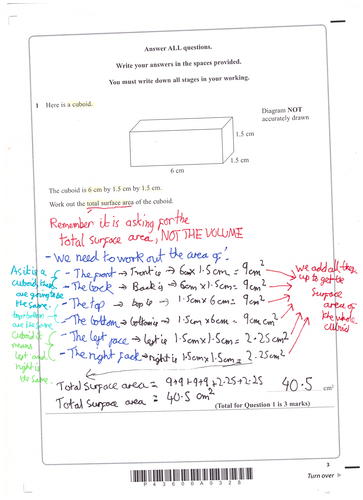 Answer ALL questions.
Write your answers in the spaces provided.
You must write down all stages in your working.
1 Here is a cuboid.
Diagram NOT
accurately drawn
1.5 cm
1.5 cm
6 cm
The cuboid is 6 cm by 1.5 cm by 1.5 cm.
Work out the total surface area of the cuboid.
Remember it is asking for the
total surface area, NOT THE VOLUME
- We need to work out the area of:
- The front → Front is → 6cm x 1.5cm = 9cm²
- The back → Back is → 6cm x 1.5cm = 9cm²
- The top → top is → 1.5cm x 6cm = 9cm²
- The bottom → bottom is → 1.5cm x 6cm = 9cm²
- The left face → left is 1.5cm x 1.5cm = 2.25cm²
- The right face → right is 1.5cm x 1.5cm = 2.25cm²
As it is a
cuboid, these
are going to be
the same.
top + bottom
are the same
Cuboid
means
left and
right is
the same.
we add all these
up to get the
surface
area of
the whole
cuboid
Total surface area = 9+9+9+9+2.25+2.25
Total surface area = 40.5 cm²
40.5 cm²
(Total for Question 1 is 3 marks)
3
Turn over
P43600A0328